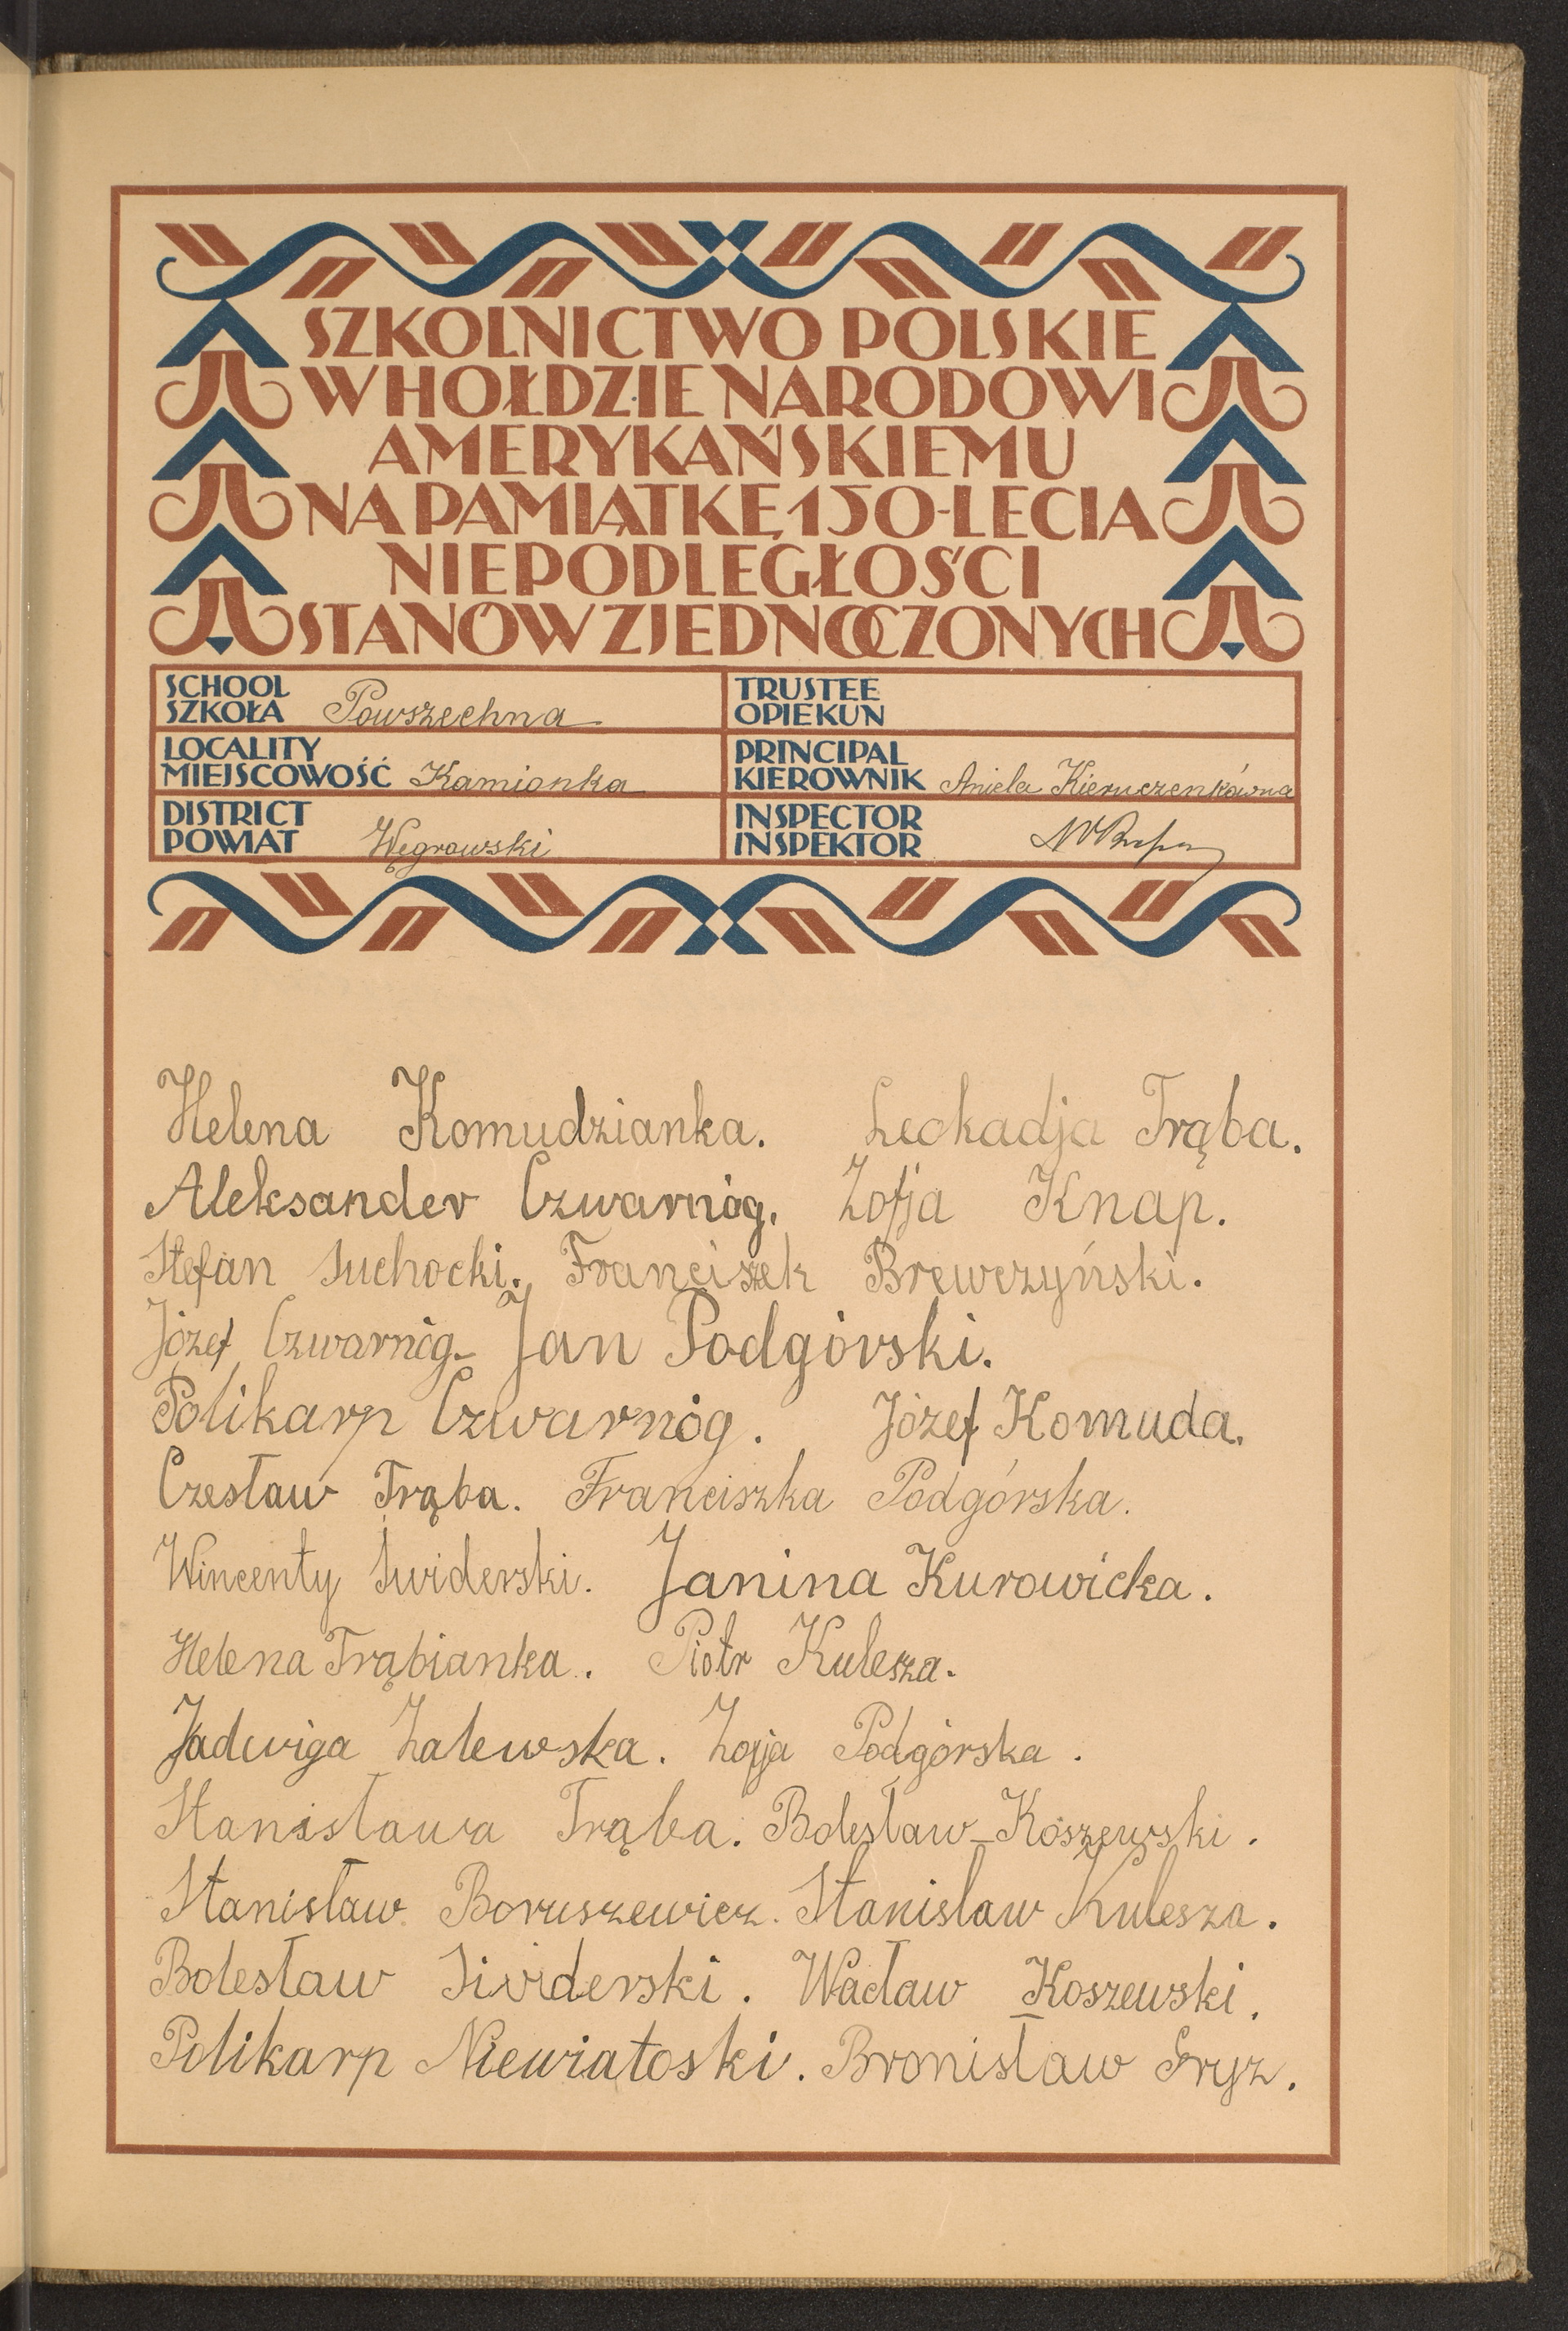 SZKOLNICTWO POLSKIE
W HOŁDZIE NARODOWI
AMERYKAŃSKIEMU
NA PAMIĄTKĘ 150-LECIA
NIEPODLEGŁOŚCI
STANÓW ZJEDNOCZONYCH
SCHOOL
SZKOŁA Powszechna
TRUSTEE
OPIEKUN
LOCALITY
MIEJSCOWOŚĆ Kamionka
PRINCIPAL
KIEROWNIK Aniela Kieruczenkówna
DISTRICT
POWIAT Węgrowski
INSPECTOR
INSPEKTOR
Helena Komudzianka. Leokadja Trąba.
Aleksander Czwarnóg. Zofja Knap.
Stefan Suchocki. Franciszek Brewczyński.
Józef Czwarnóg. Jan Podgórski.
Polikarp Czwarnóg. Józef Komuda.
Czesław Trąba. Franciszka Podgórska.
Wincenty Świderski. Janina Kurowicka.
Helena Trąbianka. Piotr Kulesza.
Jadwiga Zalewska. Zofja Podgórska.
Stanisława Trąba. Bolesław Koszewski.
Stanisław Boruszewicz. Stanisław Kulesza.
Bolesław Świderski. Wacław Koszewski.
Polikarp Niewiatoski. Bronisław Gryz.